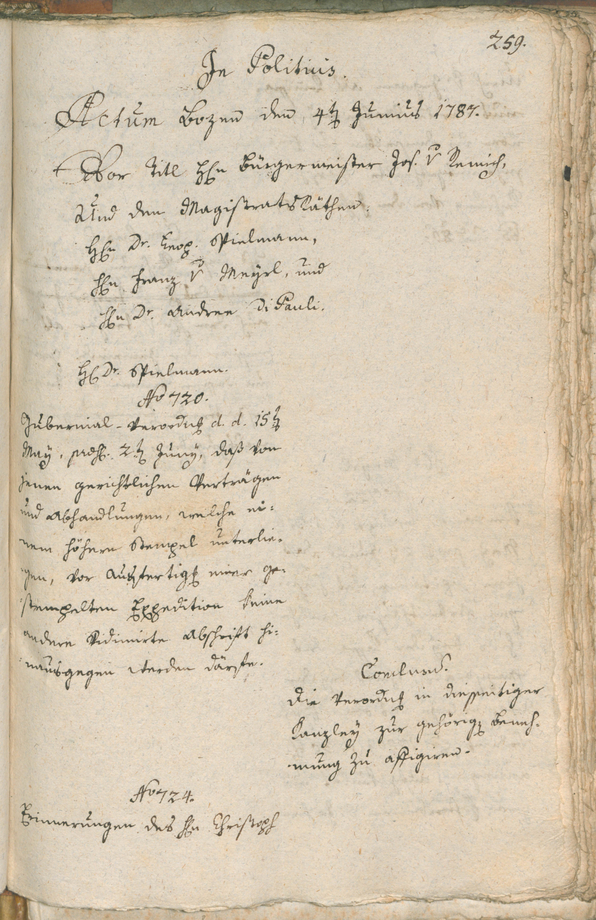 259.
In Politicis.
Actum Bozen den 4t Junius 1787.
Vor Titl Hn Bürgermeister Jos. v Remich,
und den Magistrats Räthen.
Hn Dr. Leop. Spielmann,
Hn Franz v Meyrl, und
Hn Dr. Andree Di Pauli.
H Dr. Spielmann.
No 720.
Gubernial-Verordg d. d. 15t
May, præs. 2t Juny, daß von
jenen gerichtlichen Verträgen
und Abhandlungen, welche ei-
nem höhern Stempel unterlie-
gen, vor Ausfertigg einer ge-
stempelten Expedition keine
andere Vidimirte Abschrift hi-
nausgegen werden dürfte.
Conclus.
Die Verordg in diesseitiger
Kanzley zur gehörig Beneh-
mung zu affigiren.
No 724.
Erinnerungen des Hn Christoph